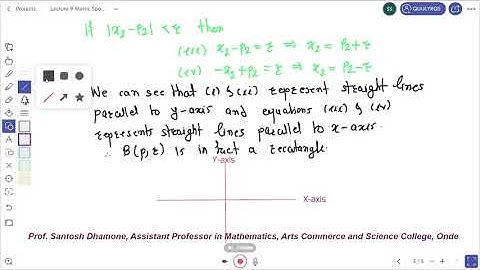 Presents
Lecture 9 Matric Spa...
SS
QUULYRGS
If |x2-p2| < ε then
(iii) x2-p2 = ε ⇒ x2 = p2+ε
(iv) -x2+p2 = ε ⇒ x2 = p2-ε
We can see that (i) & (ii) represent straight lines
parallel to y-axis and equations (iii) & (iv)
represents straight lines parallel to x-axis.
∴ B(p,ε) is in fact a rectangle.
Y-axis
X-axis
Prof. Santosh Dhamone, Assistant Professor in Mathematics, Arts Commerce and Science College, Onde